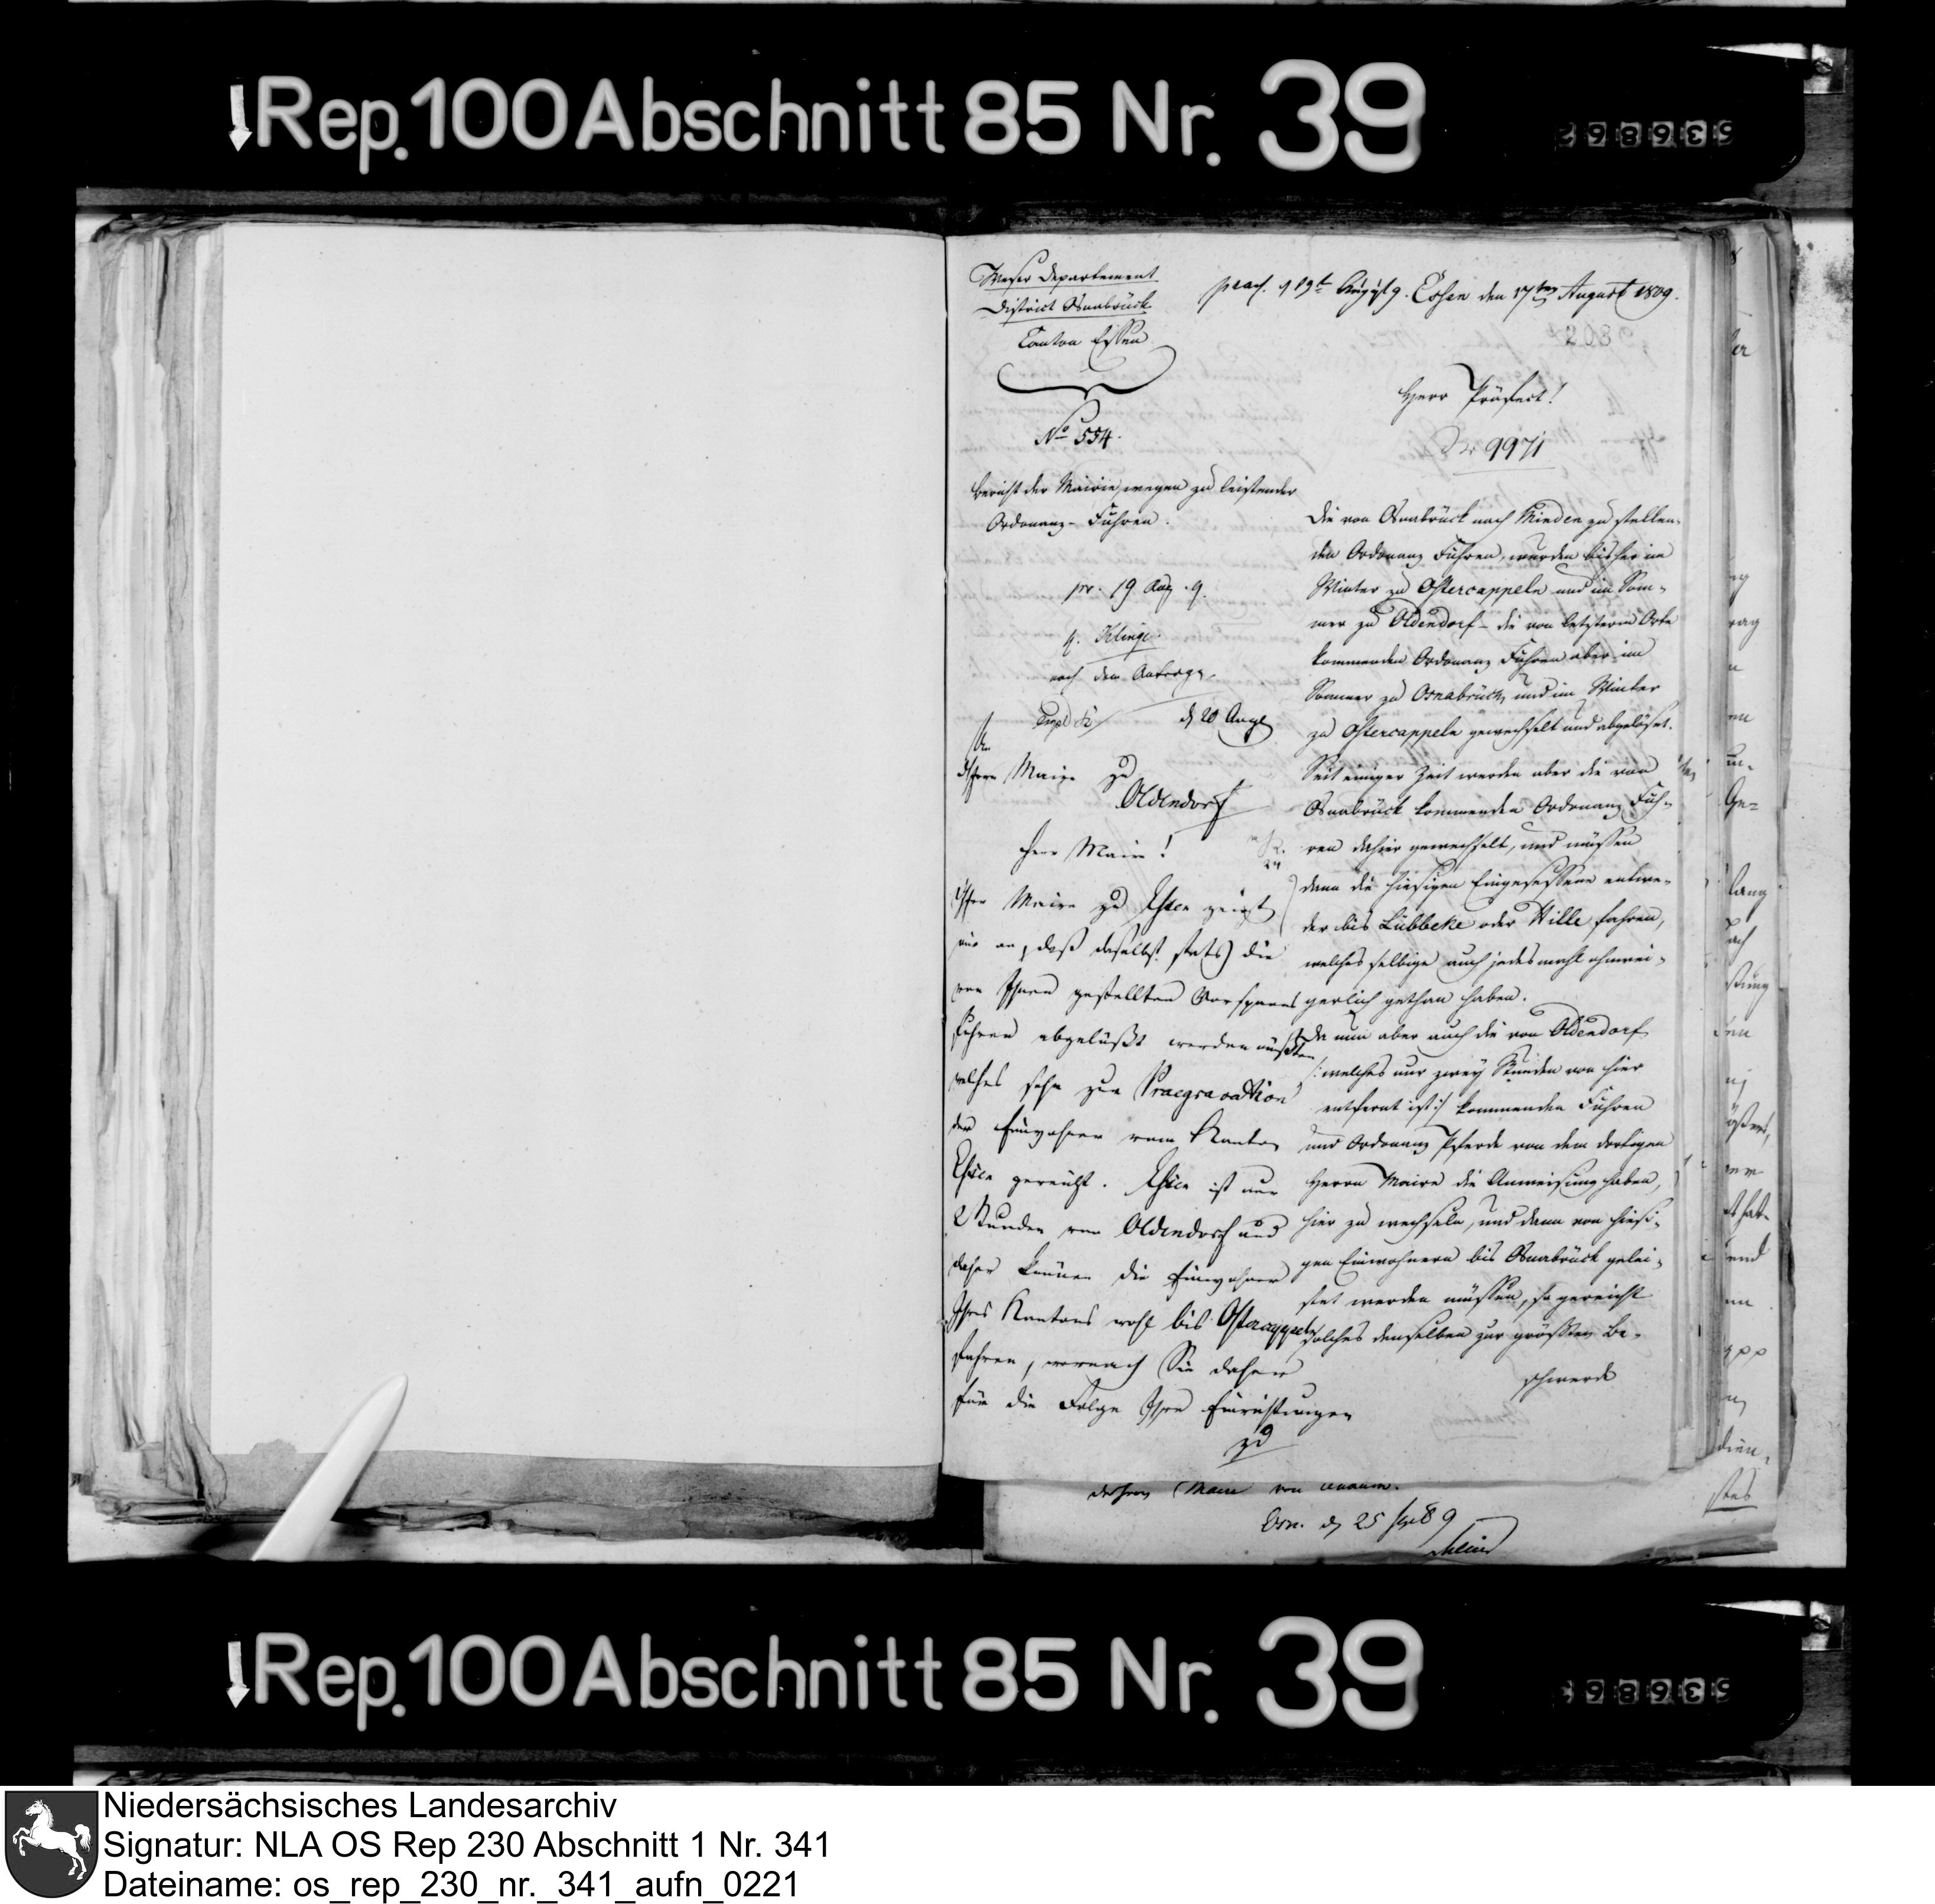 Rep. 100 Abschnitt 85 Nr. 39
Weser Departement
District Osnabrück
Canton Essen
No 554.
Bericht der Mairie, wegen zu leistender
Ordonanz-Fuhren.
pr. 19 Aug. 9.
Klinge
nach dem Antrage.
d 20 Aug
An
Herrn Maire zu
Oldendorf
Herr Maire!
Herr Maire zu Essen zeigt
mir an, daß daselbst stets die
von Ihnen gestellten Vorspann
Fuhren abgelößt werden müßten
welches sehr zur Praegravation
der Einwohner vom Kanton
Essen gereicht. Essen ist nur
2 Stunden von Oldendorf und
daher können die Einwohner
Ihres Kantons wohl bis Ostercappeln
fahren, wornach Sie daher
für die Folge Ihre Einrichtungen
zu
praes. d 19t August 9. Essen den 17ten August 1809.
Herr Präfect!
9971
Die von Osnabrück nach Minden zu stellen-
den Ordonanz Fuhren, wurden bisher im
Winter zu Ostercappeln und im Som-
mer zu Oldendorf - die von letzterm Orte
kommenden Ordonanz Fuhren aber im
Sommer zu Osnabrück, und im Winter
zu Ostercappeln gewechselt und abgelöset.
Seit einiger Zeit werden aber die von
Osnabrück kommenden Ordonanz Fuh-
ren dahier gewechselt, und müssen
dann die hiesigen Eingesessene entwe-
der bis Lübbecke oder Hille fahren,
welches selbige auch jedesmahl ohnwei-
gerlich gethan haben.
Da nun aber auch die von Oldendorf
/: welches nur zwey Stunden von hier
entfernt ist :/ kommenden Fuhren
und Ordonanz Pferde von dem dortigen
Herrn Maire die Anweisung haben,
hier zu wechseln, und dann von hiesi-
gen Einwohnern bis Osnabrück gelei-
stet werden müssen, so gereicht
solches denselben zur größten Be-
schwerde
Maire von
Osn. d 25 9
Rep. 100 Abschnitt 85 Nr. 39
Niedersächsisches Landesarchiv
Signatur: NLA OS Rep 230 Abschnitt 1 Nr. 341
Dateiname: os_rep_230_nr._341_aufn_0221